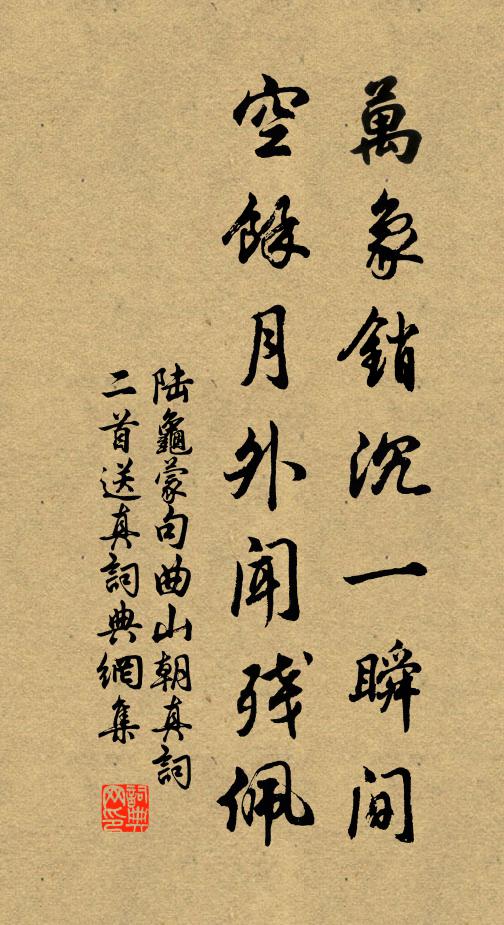 萬象銷沉一瞬間
空餘月外聞殘佩
陆龜蒙句曲山朝真詞
二首送真詞典網集
詞典网印